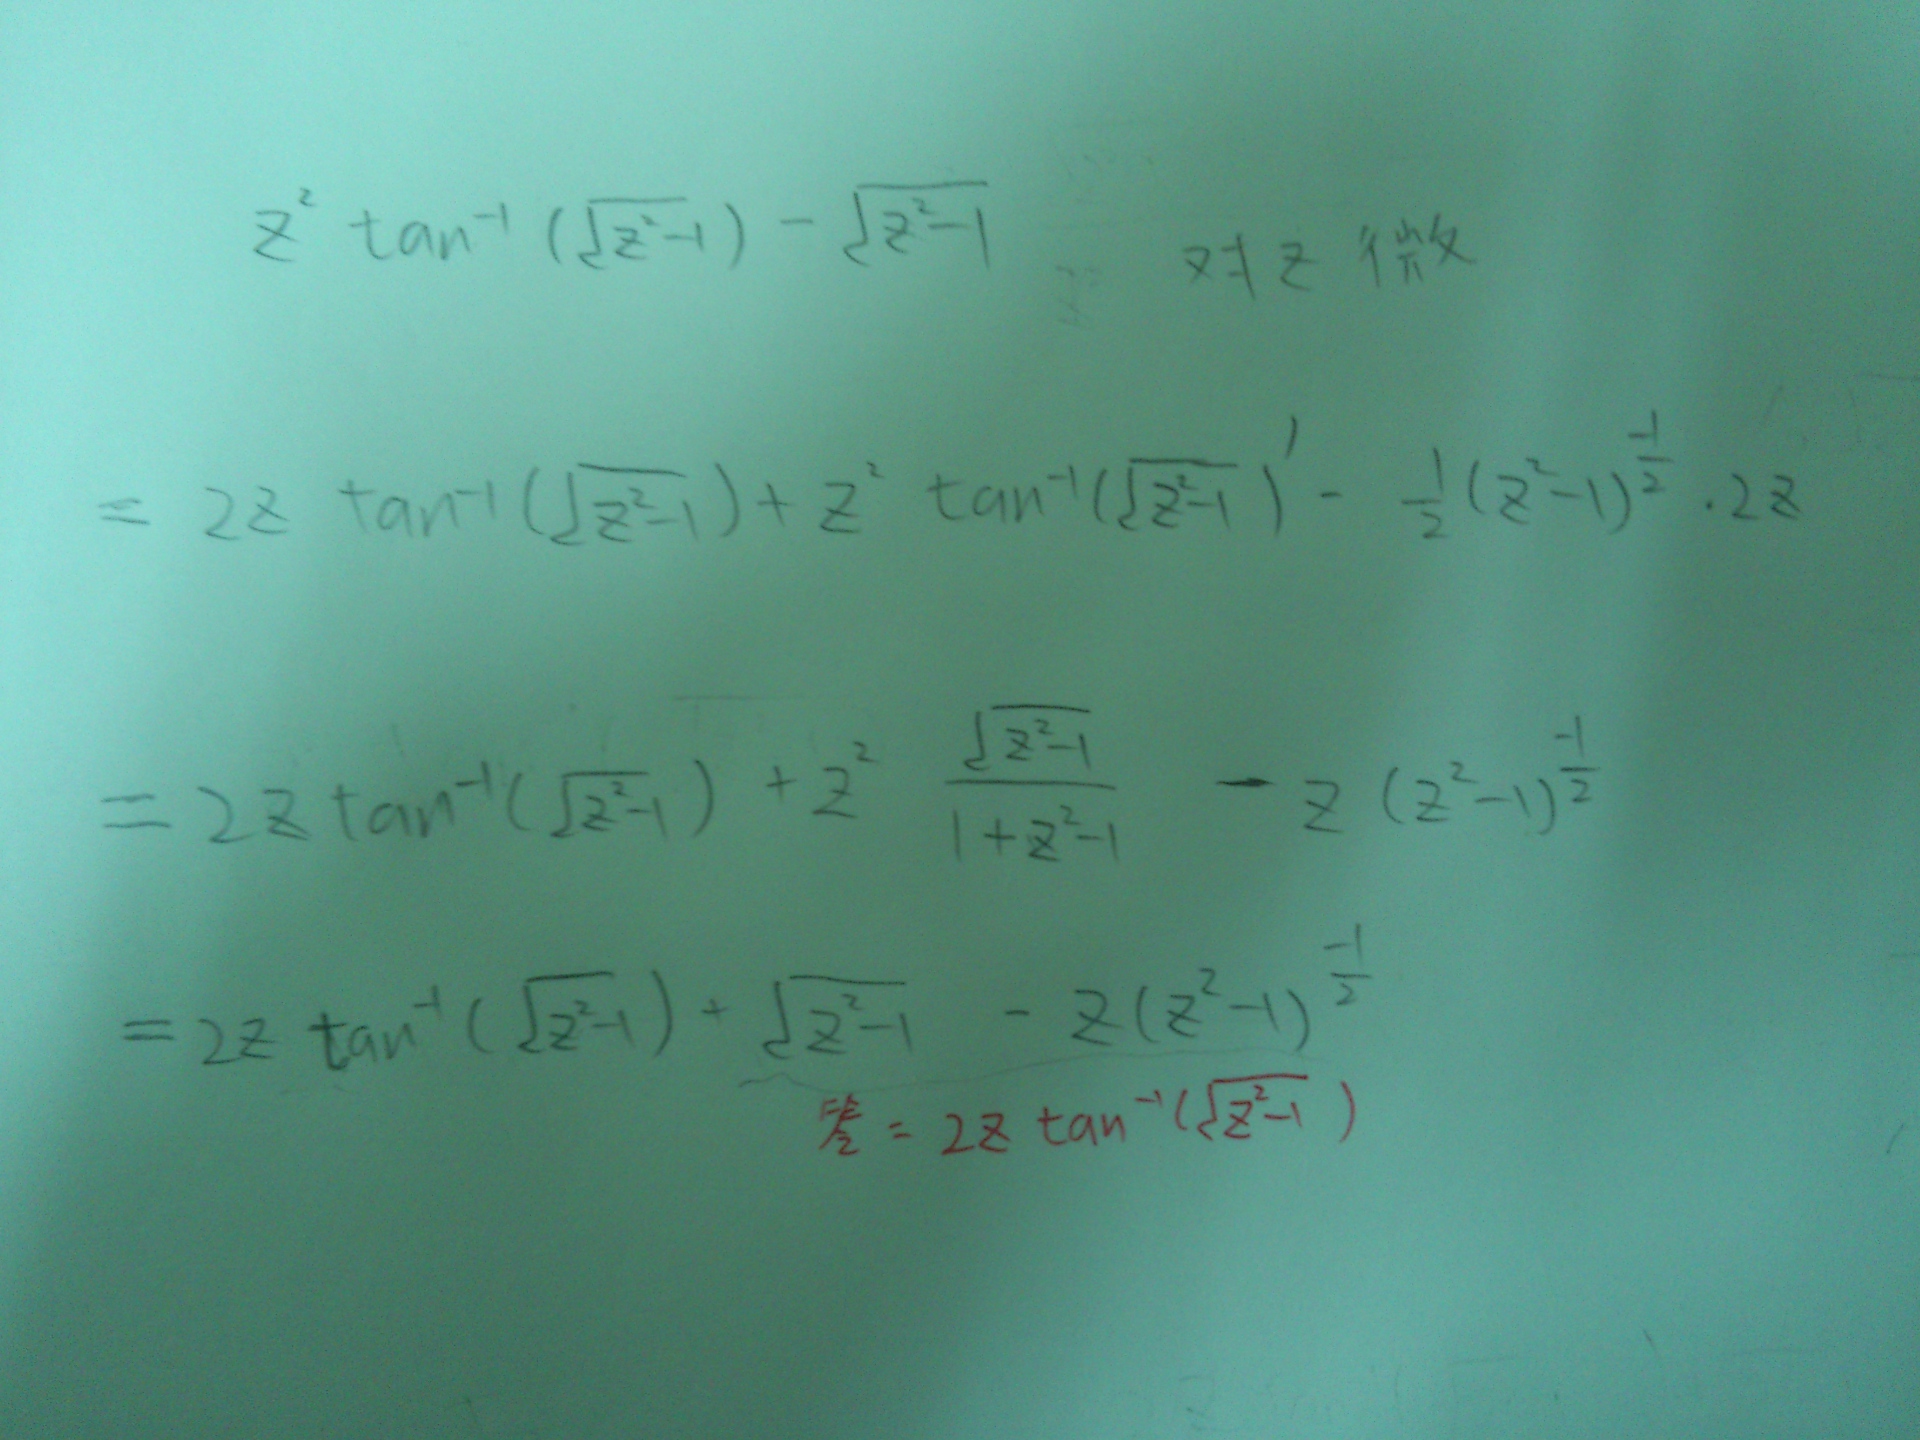 z² tan⁻¹(√(z²-1)) - √(z²-1) 对 z 微
= 2z tan⁻¹(√(z²-1)) + z² tan⁻¹(√(z²-1))' - 1/2 (z²-1)^(-1/2) · 2z
= 2z tan⁻¹(√(z²-1)) + z² √(z²-1)/(1+z²-1) - z (z²-1)^(-1/2)
= 2z tan⁻¹(√(z²-1)) + √(z²-1) - z(z²-1)^(-1/2)
答 = 2z tan⁻¹(√(z²-1))